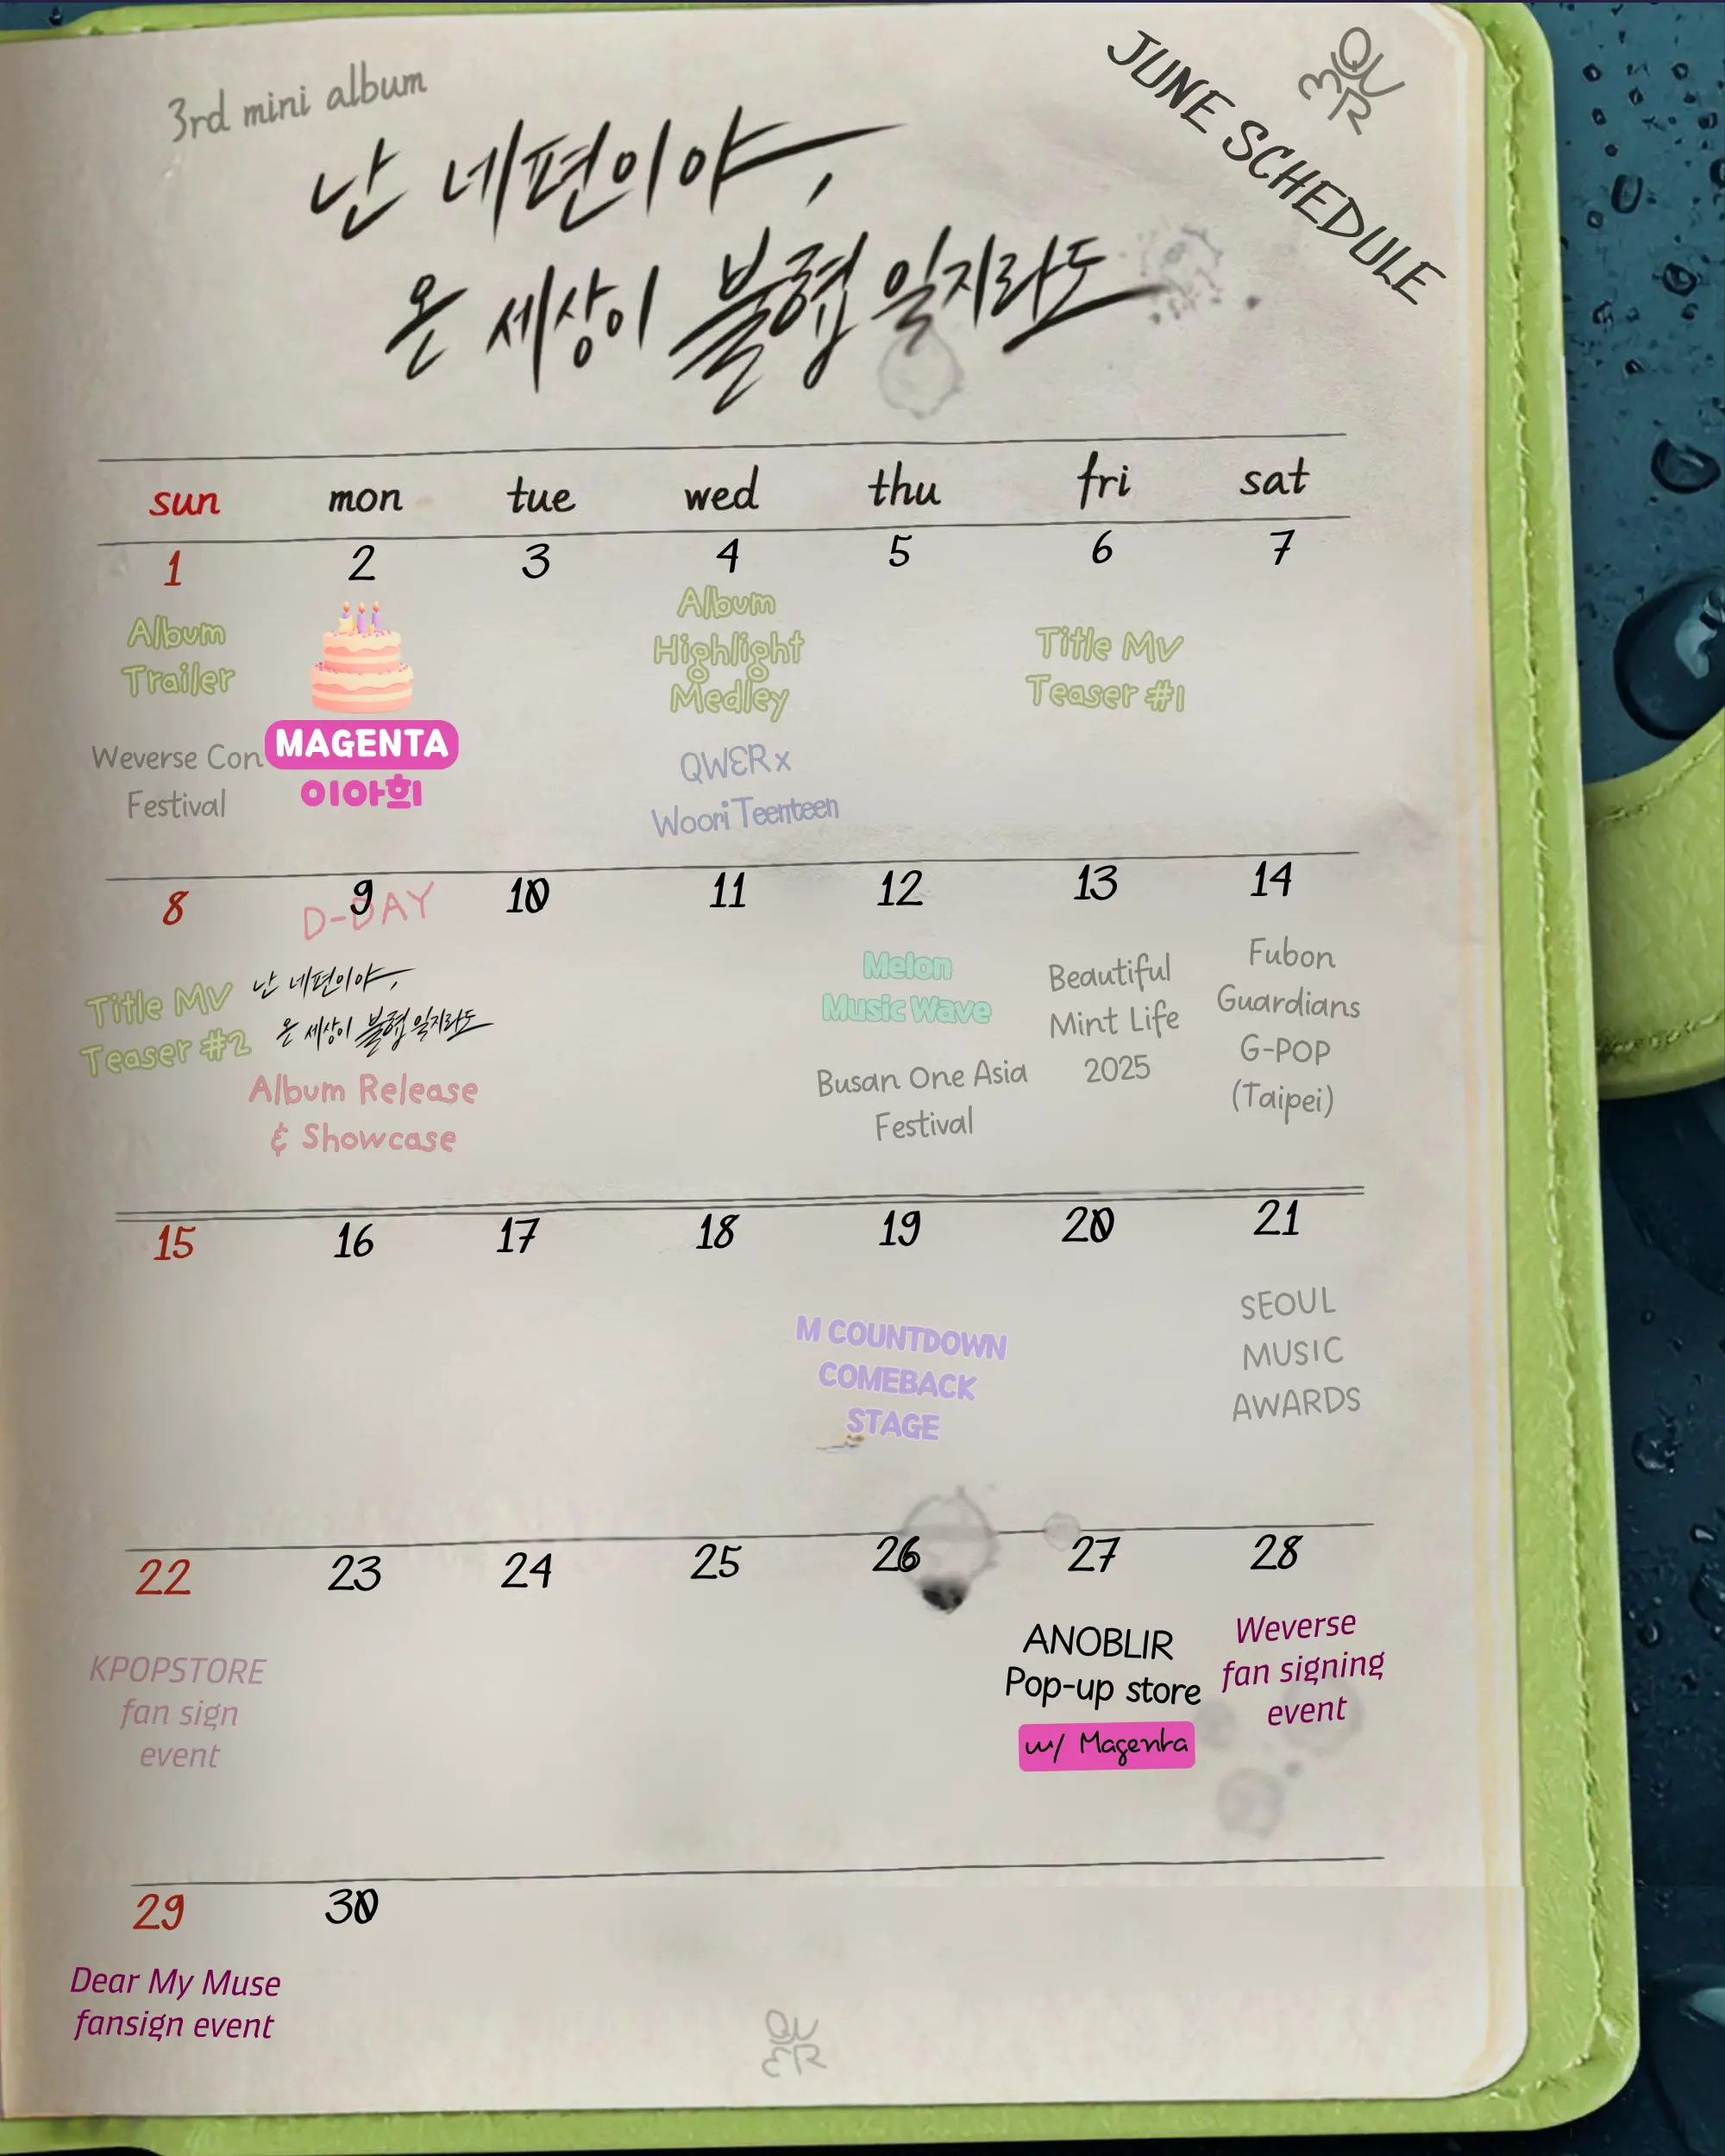 3rd mini album
JUNE SCHEDULE
QWER
난 네편이야,
온 세상이 불협일지라도
sun mon tue wed thu fri sat
1 2 3 4 5 6 7
Album
Trailer
Weverse Con
Festival
MAGENTA
이아희
Album
Highlight
Medley
QWER x
Woori Teenteen
Title MV
Teaser #1
8 9 10 11 12 13 14
Title MV
Teaser #2
D-DAY
난 네편이야,
온 세상이 불협일지라도
Album Release
& Showcase
Melon
Music Wave
Busan One Asia
Festival
Beautiful
Mint Life
2025
Fubon
Guardians
G-POP
(Taipei)
15 16 17 18 19 20 21
M COUNTDOWN
COMEBACK
STAGE
SEOUL
MUSIC
AWARDS
22 23 24 25 26 27 28
KPOPSTORE
fan sign
event
ANOBLIR
Pop-up store
w/ Magenta
Weverse
fan signing
event
29 30
Dear My Muse
fansign event
QWER